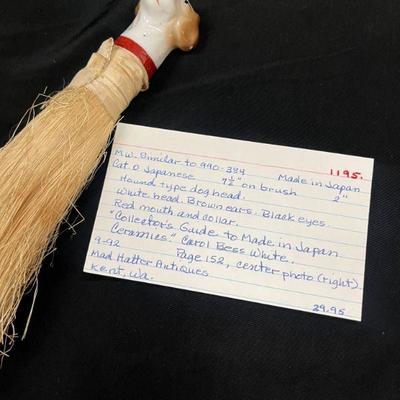 1195.
M.W. Similar to 990-384 Made in Japan
Cat. O Japanese 7½" on brush 2"
Hound type dog head.
White head. Brown ears. Black eyes.
Red mouth and collar.
"Collector's Guide to Made in Japan
Ceramics." Carol Bess White.
Page 152, center photo (right).
9-92
Mad Hatter Antiques
Kent, Wa.
29.95